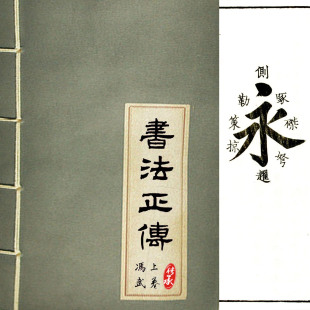 書法正傳
上卷
馮武
傳承
側
勒
啄
策
磔
掠
弩
趯
永